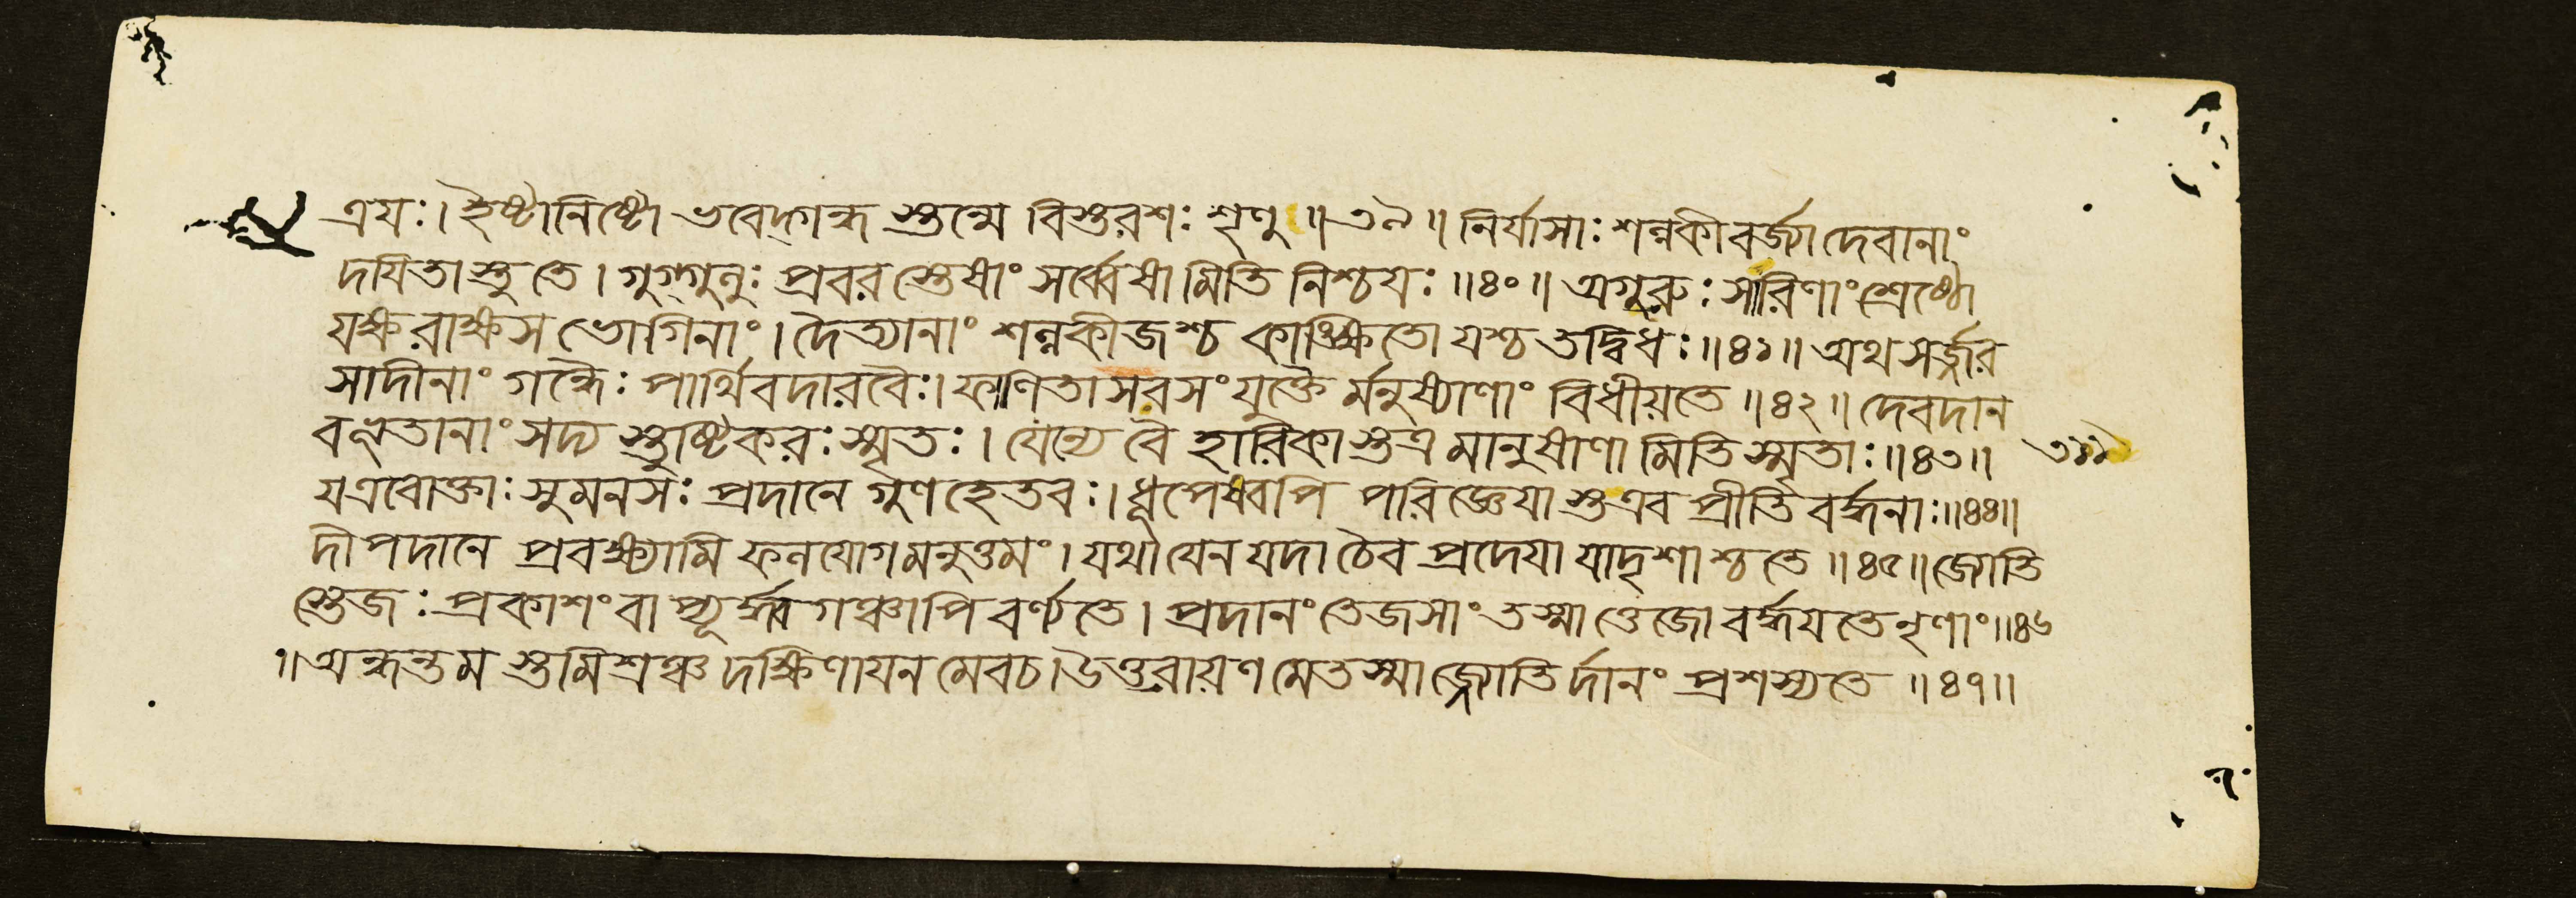 ত্রযঃ। ইষ্টানিষ্টো ভবেদ্গন্ধ স্তন্মে বিস্তরশঃ শৃণু ॥ ৩৯ ॥ নির্যাসাঃ শল্লকীবর্জা দেবানাং
দযিতাস্তু তে। গুগ্গুলুঃ প্রবর স্তেষাং সর্ব্বেষামিতি নিশ্চযঃ ॥ ৪০ ॥ অগুরুঃ সারিণাং শ্রেষ্ঠো
যক্ষরাক্ষস ভোগিনাং। দৈত্যানাং শল্লকীজশ্চ কাঙ্ক্ষিতো যশ্চ তদ্বিধঃ ॥ ৪১ ॥ অথ সর্জ্জর
সাদীনাং গন্ধৈঃ পার্থিবদারবৈঃ। ফাণিতাসবসংযুক্তৈ র্মনুষ্যাণাং বিধীয়তে ॥ ৪২ ॥ দেবদান
বভূতানাং সদ্য স্তুষ্টিকরঃ স্মৃতঃ। যেন্যে বৈহারিকা স্তত্র মানুষাণামিতি স্মৃতাঃ ॥ ৪৩ ॥
যএবোক্তাঃ সুমনসঃ প্রদানে গুণহেতবঃ। ধূপেষ্বপি পরিজ্ঞেযা স্তএব প্রীতিবর্দ্ধনাঃ ॥ ৪৪ ॥
দীপদানে প্রবক্ষ্যামি ফলযোগমনুত্তমং। যথা যেন যদা চৈব প্রদেযা যাদৃশাশ্চ তে ॥ ৪৫ ॥ জ্যোতি
স্তেজঃ প্রকাশং বাপ্যূর্দ্ধ্বগঞ্চাপি বর্ণ্যতে। প্রদানং তেজসাং তস্মাত্তেজো বর্দ্ধযতে নৃণাং ॥ ৪৬
॥ অন্ধন্তম স্তমিশ্রঞ্চ দক্ষিণাযনমেবচ। উত্তরায়ণমেতস্মাজ্জ্যোতির্দানং প্রশস্যতে ॥ ৪৭ ॥